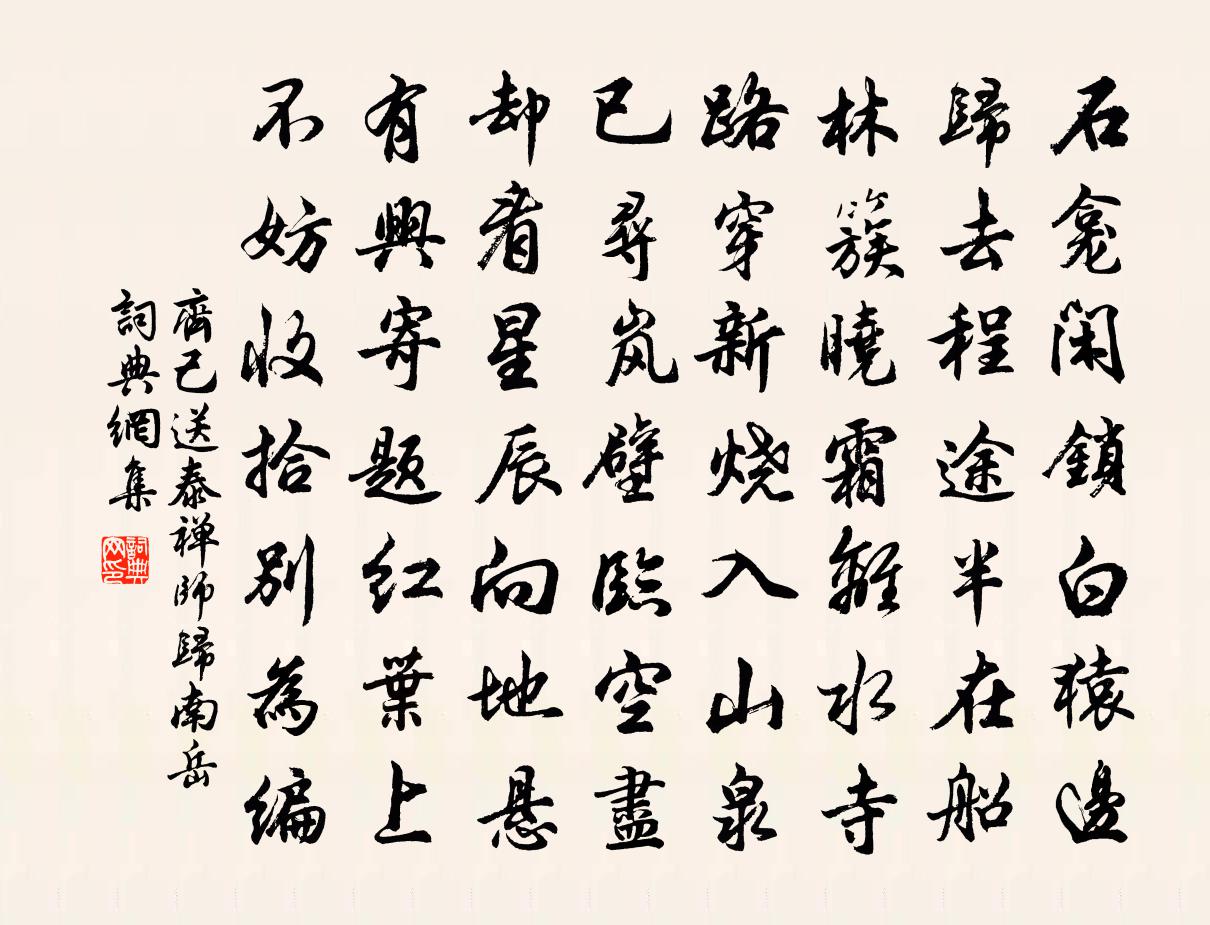 石龕閑鎖白猿邊
歸去程途半在船
林簇曉霜離水寺
路穿新烧入山泉
已尋岚壁臨空盡
却看星辰向地悬
有興寄题红葉上
不妨收拾别為编
齊己送泰禅師歸南岳
詞典網集
詞典网印